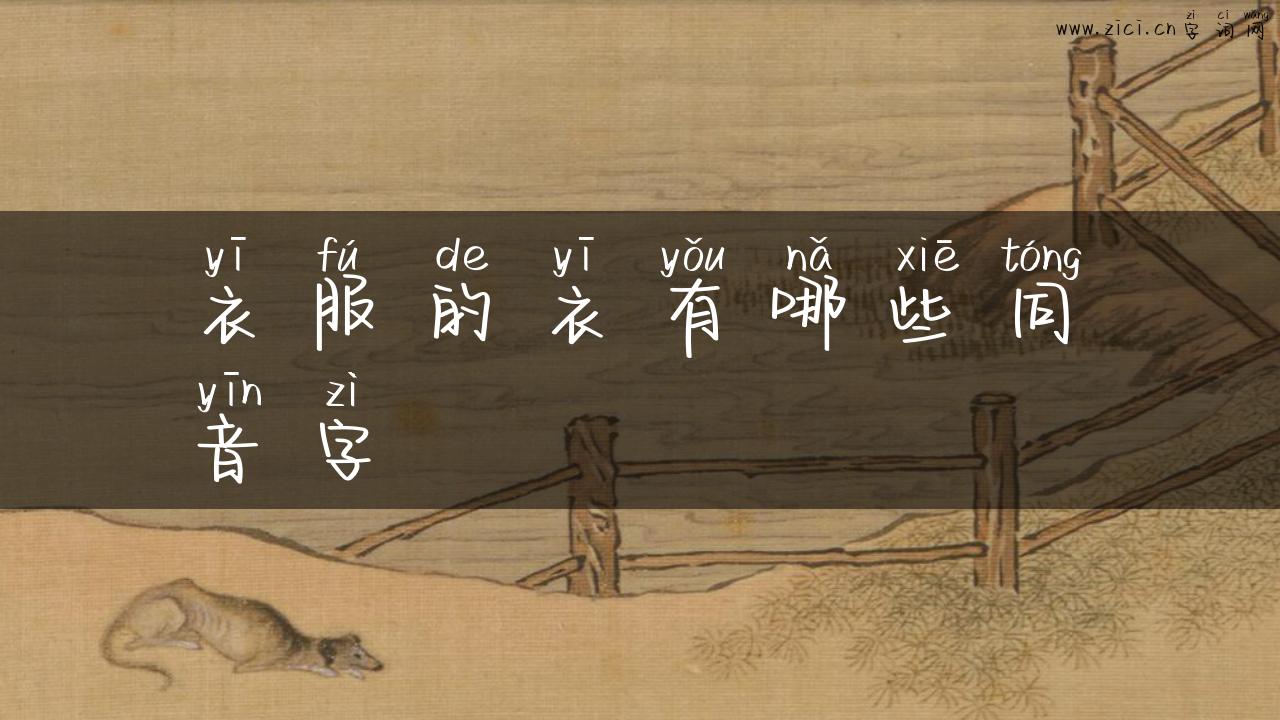 zì cí wǎng
www.zici.cn 字词网
yī fú de yī yǒu nǎ xiē tóng
衣服的衣有哪些同
yīn zì
音字